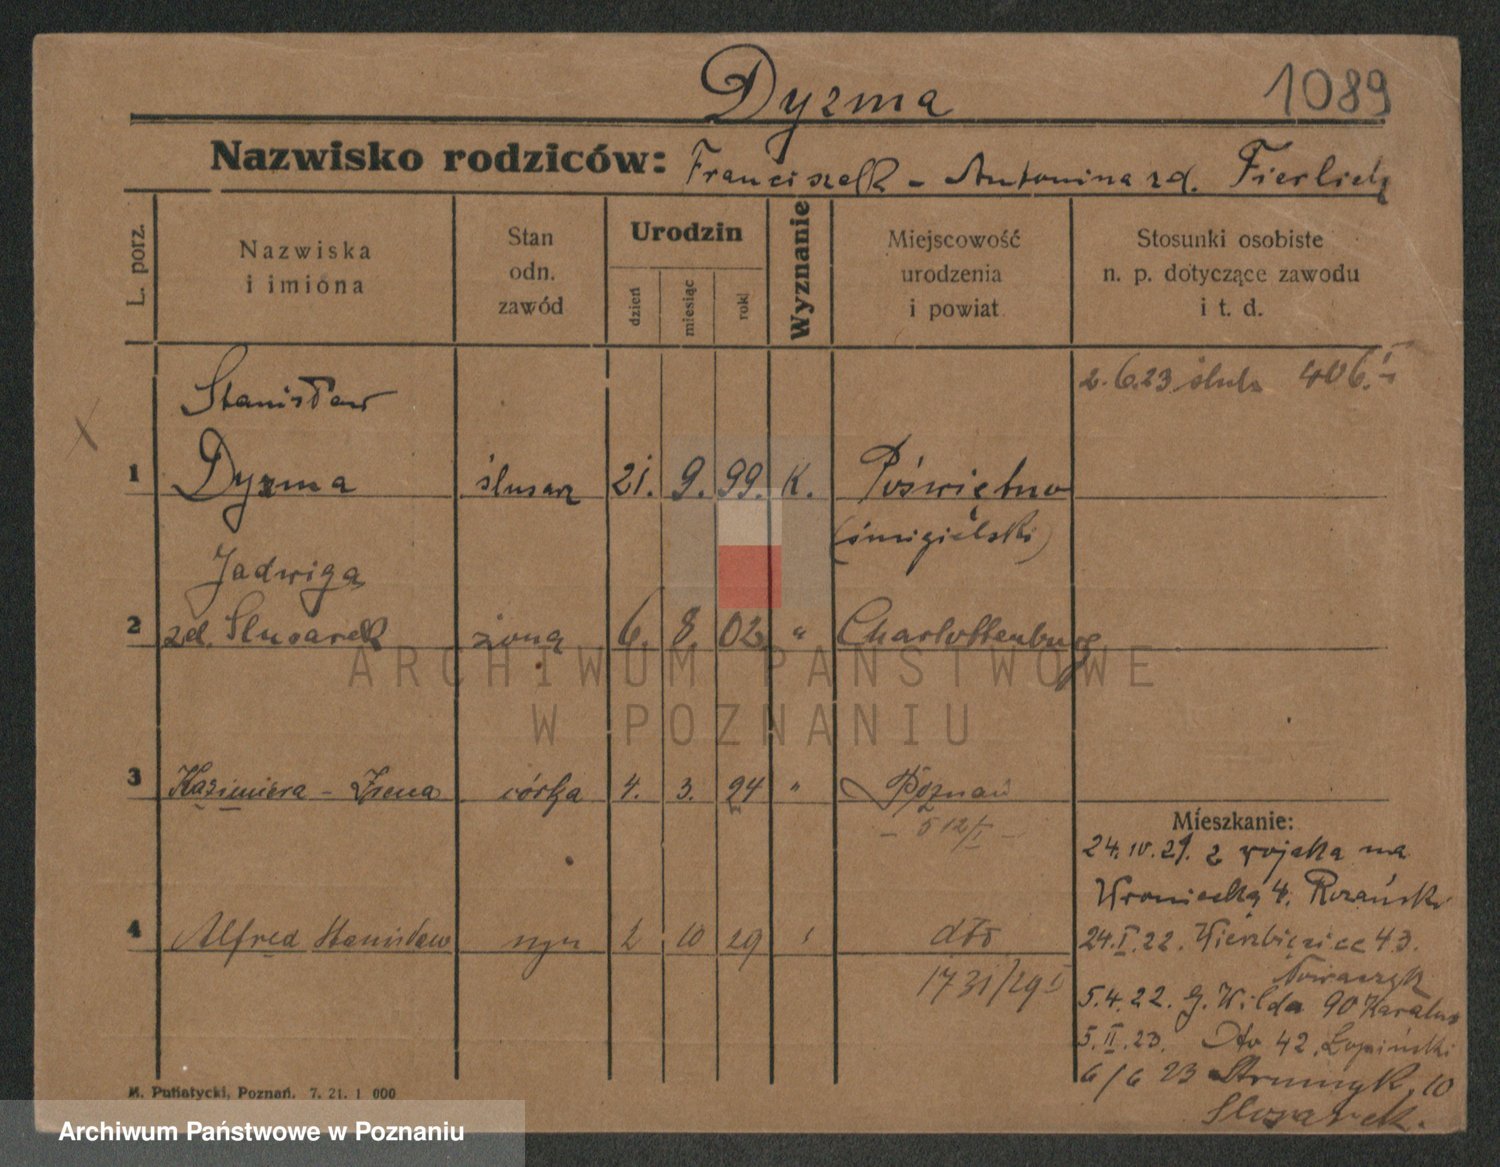 Dyzma 1089
Nazwisko rodziców: Franciszek - Antonina zd. Fierlich
L. porz.
Nazwiska i imiona
Stan odn. zawód
Urodzin
dzień
miesiąc
rok
Wyznanie
Miejscowość urodzenia i powiat
Stosunki osobiste n. p. dotyczące zawodu i t. d.
Stanisław 2.6.23 ślub 406.I
1 Dyzma ślusarz 21. 9. 99. K. Poświętno
(śmigielski)
Jadwiga
2 zd. Slusarek żona 6. 8. 02 " Charlottenburg
3 Kazimiera - Irena córka 4. 3. 24 " Poznań
- 512/I -
Mieszkanie:
24.IV.21. z wojska na
Wroniecką 4. Rozański
4 Alfred Stanisław syn 2 10 29 dto
24.I.22. Wierzbięcice 43.
Nowaczyk
1731/29 I
5.4.22. G. Wilda 90
5.II.23. Dto 42. Łopiński
6/6 23 Strumyk. 10
Slusarek.
M. Putiatycki, Poznań. 7. 21. 1 000
ARCHIWUM PAŃSTWOWE
W POZNANIU
Archiwum Państwowe w Poznaniu